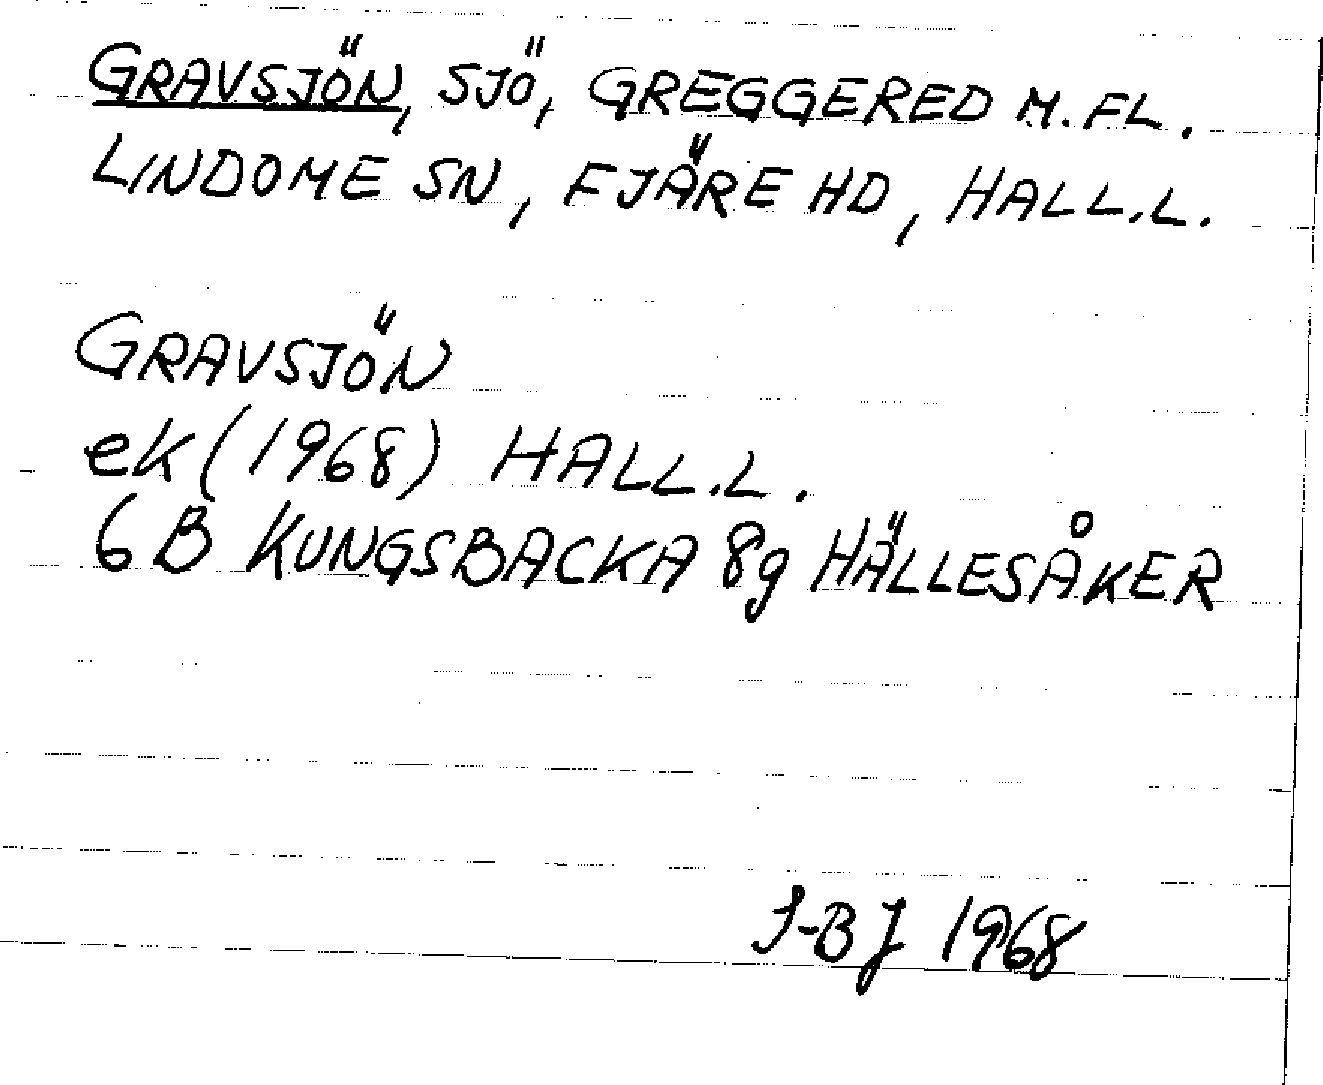 GRAVSJÖN, SJÖ, GREGGERED M.FL.
LINDOME SN, FJÄRE HD, HALL.L.
GRAVSJÖN
ek (1968) HALL.L.
6B KUNGSBACKA 8g HÄLLESÅKER
S-BJ 1968